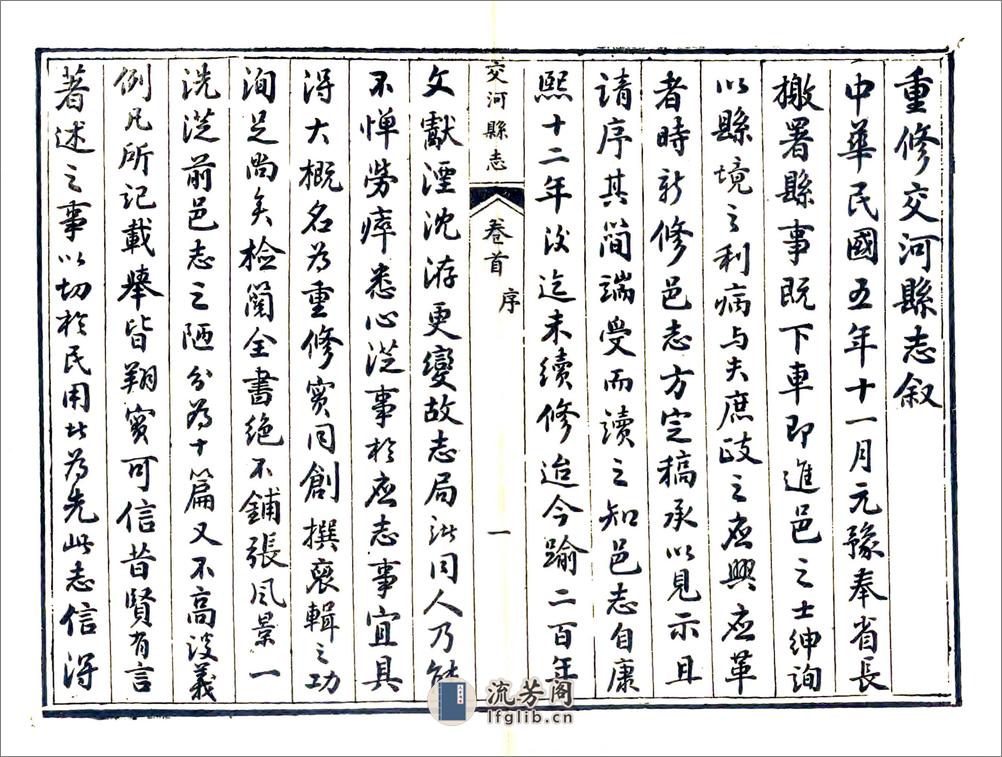 重修交河縣志叙
中華民國五年十一月元豫奉省長
檄署縣事既下車即進邑之士紳詢
以縣境之利病与夫庶政之應興應革
者時新修邑志方定稿承以見示且
請序其簡端受而讀之知邑志自康
熙十二年後迄未續修迨今踰二百年
交河縣志
卷首
序
一
文獻湮沈游更變故志局諸同人乃能
不惮勞瘁悉心從事於應志事宜具
得大概名為重修實同創撰裒輯之功
洵足尚矣檢閱全書絶不鋪張風景一
洗從前邑志之陋分為十篇又不高談義
例凡所記載舉皆翔實可信昔賢有言
著述之事以切於民用者為先此志信得
流芳阁
lfglib.cn